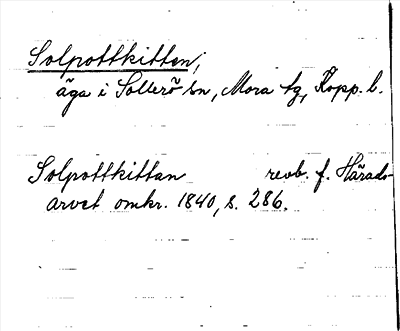 Solpottkitten,
äga i Sollerö sn, Mora tg, Kopp. l.
Solpottkittan revb. f. Härads-
arvet omkr. 1840, s. 286.